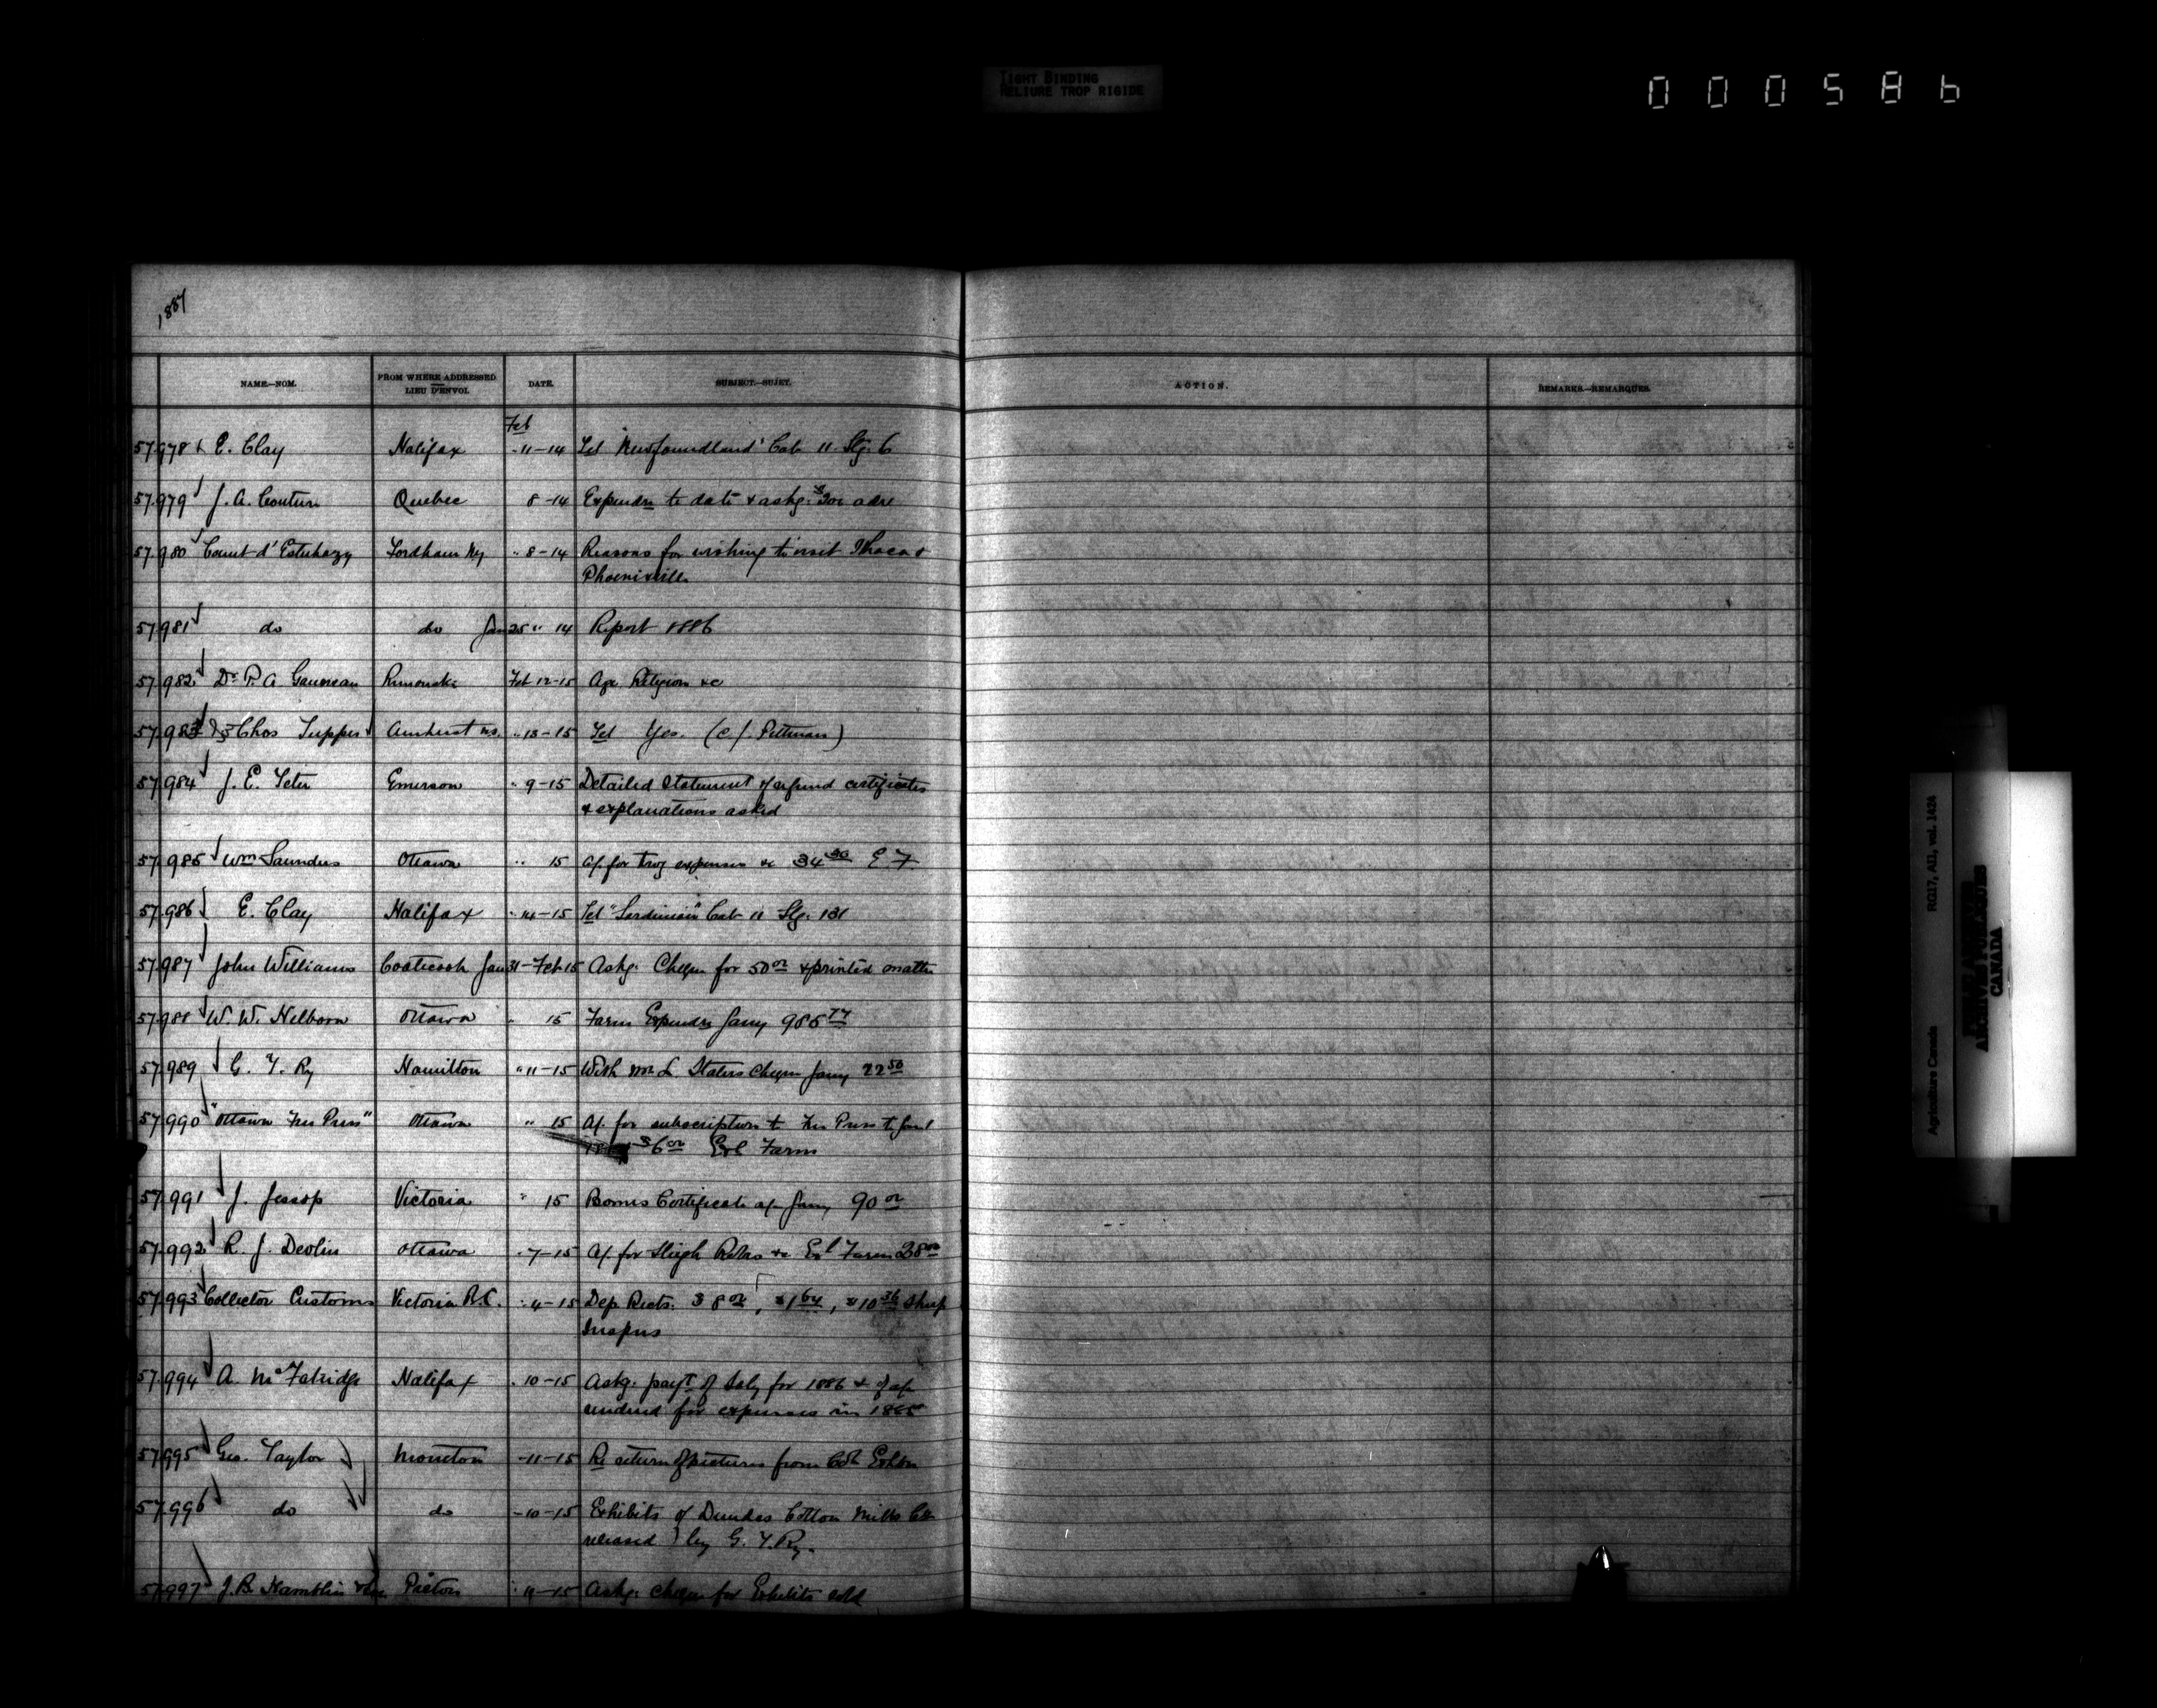 TIGHT BINDING
RELIURE TROP RIGIDE
000586
1887
NAME.—NOM. FROM WHERE ADDRESSED LIEU D'ENVOI. DATE. SUBJECT.—SUJET. ACTION. REMARKS.—REMARQUES.
Feb
57.978 E. Clay Halifax " 11-14 Tel "Newfoundland" Cab 11 Stg. 6
57.979 J. A. Couture Quebec 8-14 Expendre to date & askg. $300 adve
57.980 Count d'Esterhazy Fordham Ny " 8-14 Reasons for wishing to visit Ithaca &
Phoenixville
57.981 do do Jan 25 " 14 Report 1886
57.982 Dr. P. A. Gauvreau Rimouski Feb 12-15 Age Religion &c
57.983 Chas Tupper Amherst NS. " 13-15 Tel Yes. (C. J. Pittman)
57.984 J. E. Tetu Emerson " 9-15 Detailed Statement of refund certificates
& explanations asked
57.985 Wm Saunders Ottawa " 15 a/c for trvg expenses &c 34 30 E. F.
57.986 E. Clay Halifax " 14-15 Tel "Sardinian" Cab 11 Stg. 131
57.987 John Williams Coaticook Jan 31-Feb 15 Askg. Cheque for 50 00 & printed matter
57.988 W. W. Hilborn Ottawa " 15 Farm Expendre Jany 986 74
57.989 G. T. Ry Hamilton " 11-15 With Wm L. Staters Cheque Jany 22 50
57.990 "Ottawa Free Press" Ottawa " 15 A/c for subscription to Free Press to Jan 1
$6 00 Exl Farm
57.991 J. Jessop Victoria " 15 Bonus Certificate a/c Jany 90 00
57.992 R. J. Devlin Ottawa " 7-15 A/c for Sleigh Robes &c Exl Farm 38 00
57.993 Collector Customs Victoria B.C. " 4-15 Dep Rects. $8 00, $1 64, $10 36 Sheep
Inspns
57.994 A. McFatridge Halifax " 10-15 Askg. payt of Saly for 1886 & of a/c
rendered for expenses in 1885
57.995 Geo. Taylor Moncton " 11-15 Re return of pictures from Col Exhbn
57.996 do do " 10-15 Exhibits of Dundas Cotton Mills Co
released by G. T. Ry.
57.997 J. B. Hamblin Picton " 11-15 Askg. cheque for Exhibits sold
Agriculture Canada RG17, AII, vol. 1424
CANADA